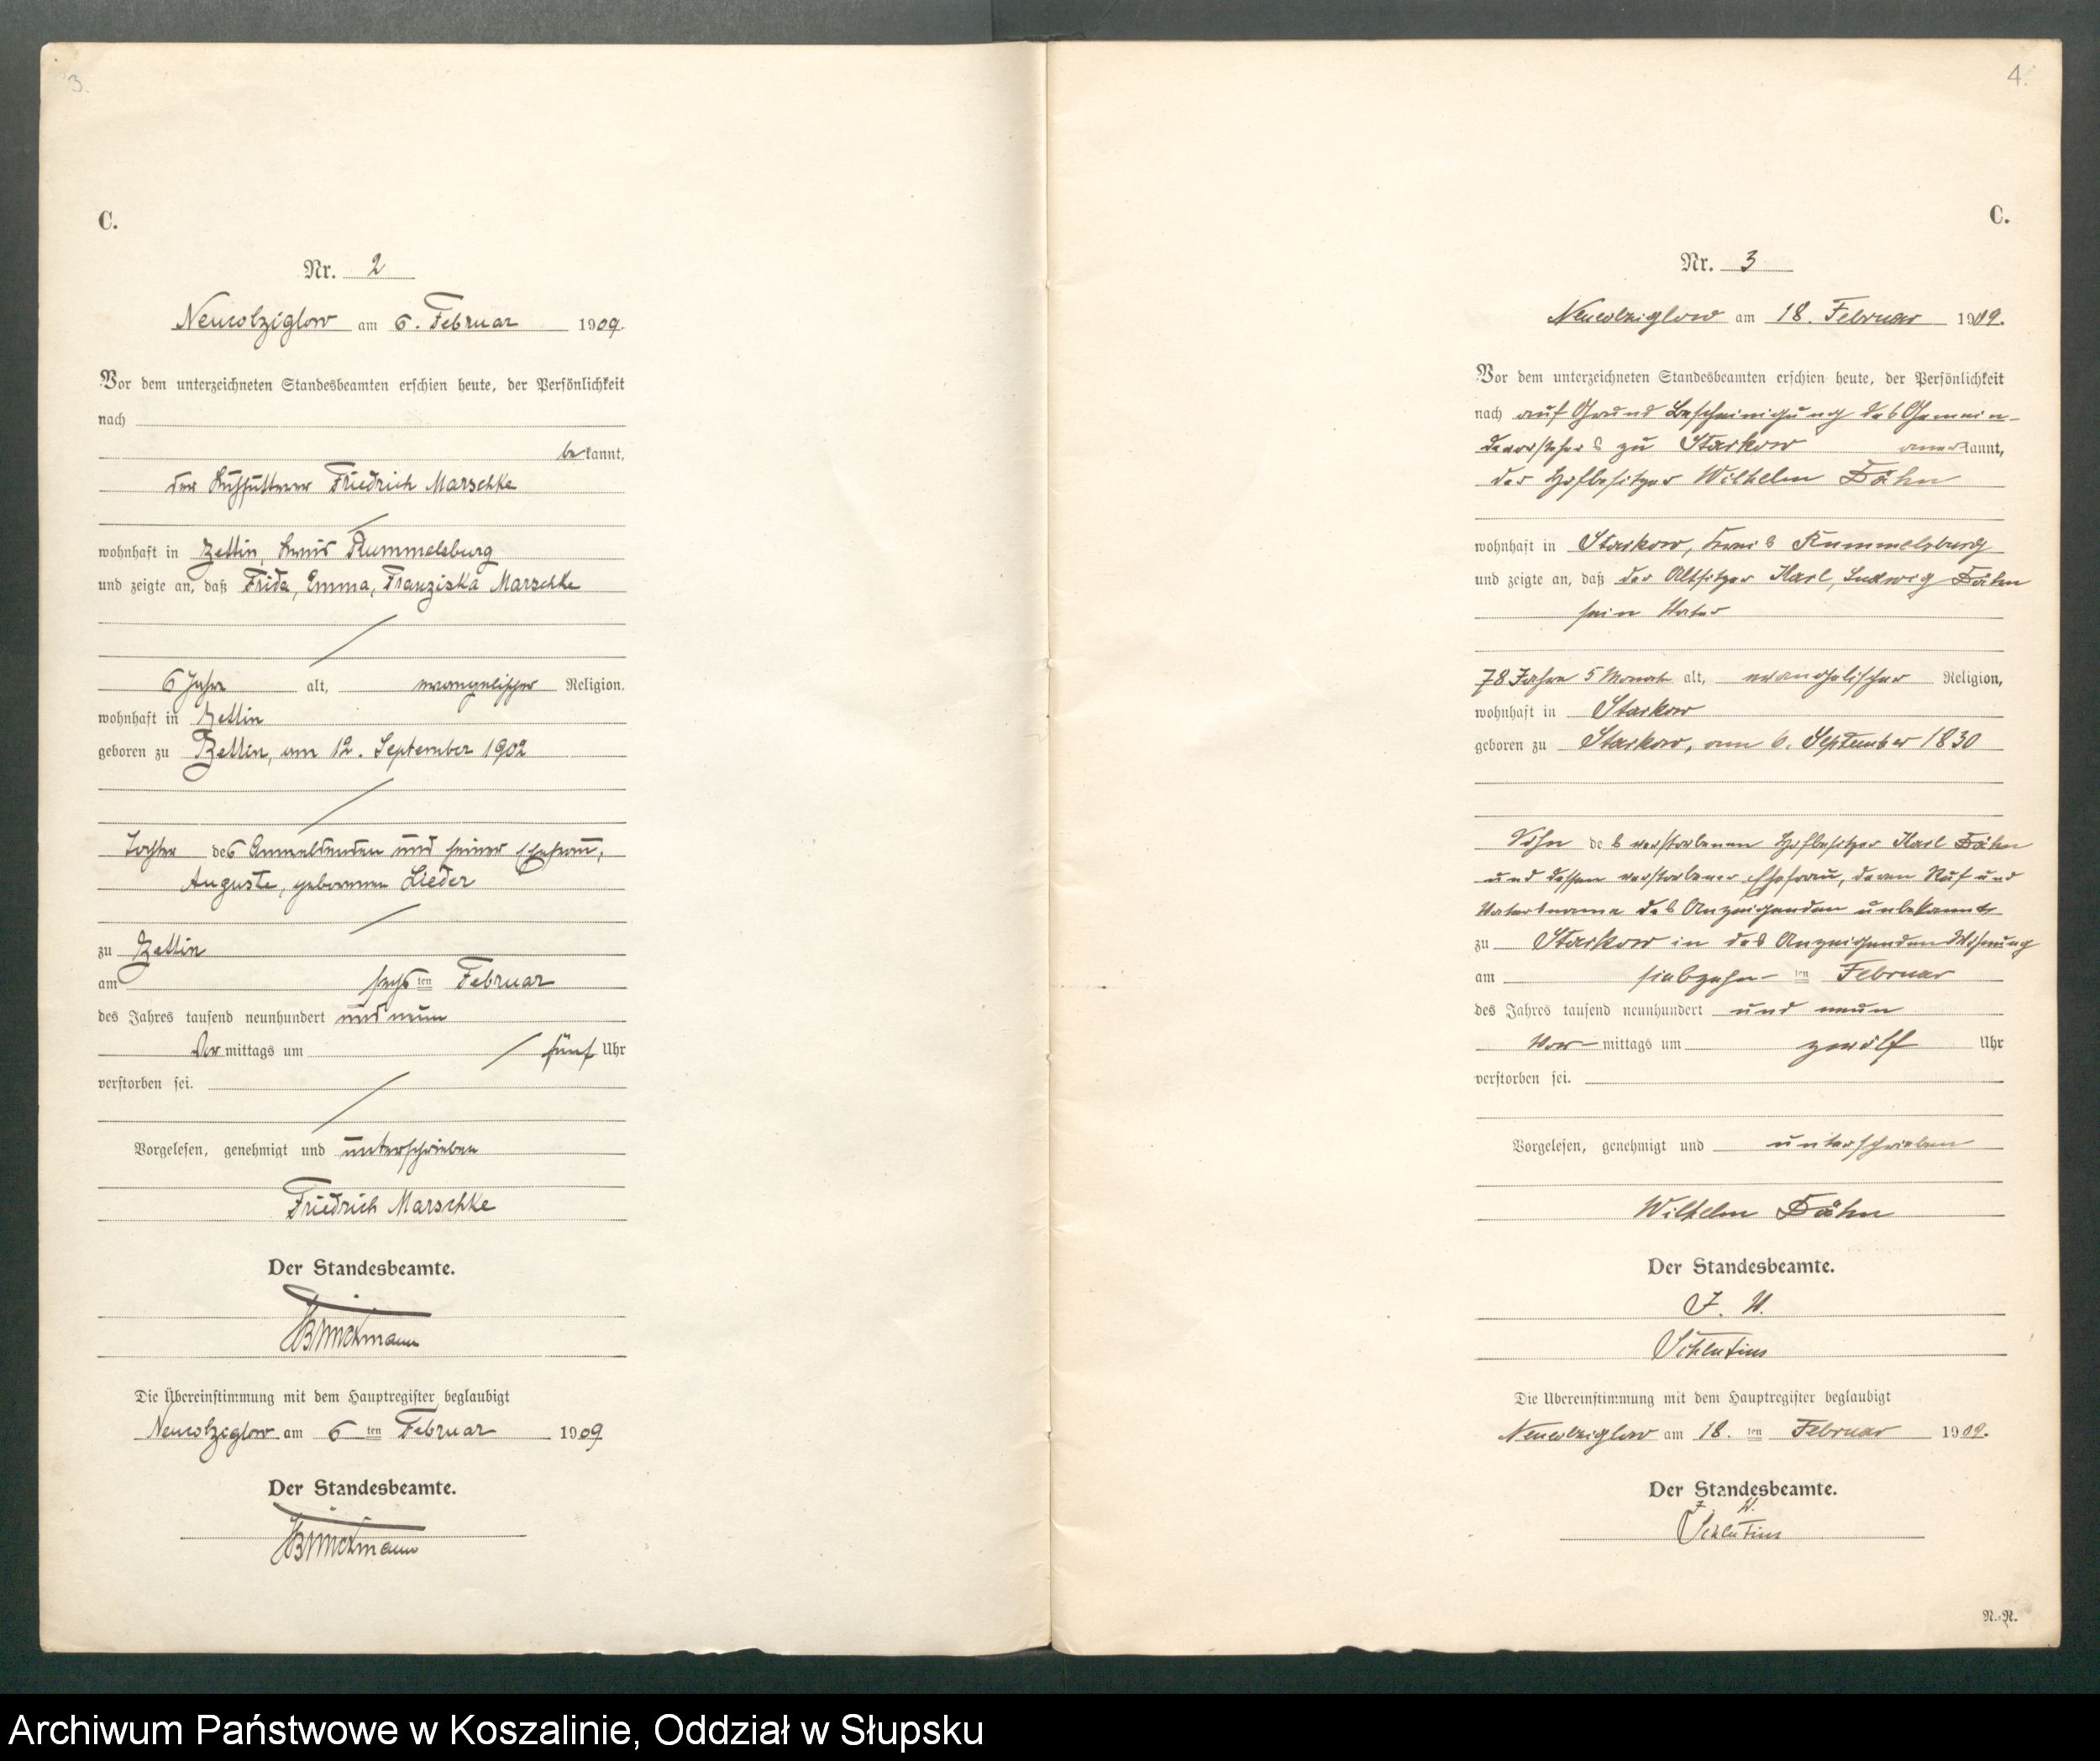 3.
C.
Nr. 2
Neucolziglow am 6. Februar 1909.
Vor dem unterzeichneten Standesbeamten erschien heute, der Persönlichkeit
nach
bekannt,
der Kuhfütterer Friedrich Marschke
wohnhaft in Zettin, Kreis Rummelsburg
und zeigte an, daß Frida, Emma, Franziska Marschke
6 Jahre alt, evangelischer Religion,
wohnhaft in Zettin
geboren zu Zettin, am 12. September 1902
Tochter des Anmeldenden und seiner Ehefrau,
Auguste, geborenen Lieder
zu Zettin
am sechsten Februar
des Jahres tausend neunhundert und neun
Vormittags um fünf Uhr
verstorben sei.
Vorgelesen, genehmigt und unterschrieben
Friedrich Marschke
Der Standesbeamte.
Brinckmann
Die Übereinstimmung mit dem Hauptregister beglaubigt
Neucolziglow am 6 ten Februar 1909
Der Standesbeamte.
Brinckmann
4.
C.
Nr. 3
Neucolziglow am 18. Februar 1909.
Vor dem unterzeichneten Standesbeamten erschien heute, der Persönlichkeit
nach auf Grund Bescheinigung des Gemein-
devorstehers zu Starkow anerkannt,
der Hofbesitzer Wilhelm Dähn
wohnhaft in Starkow, Kreis Rummelsburg
und zeigte an, daß der Altsitzer Karl, Ludwig Dähn
sein Vater
78 Jahre 5 Monat alt, evangelischer Religion,
wohnhaft in Starkow
geboren zu Starkow, am 6. September 1830
Sohn des verstorbenen Hofbesitzer Karl Dähn
und dessen verstorbener Ehefrau, deren Ruf und
Vatersname des Anzeigenden unbekannt
zu Starkow in des Anzeigenden Wohnung
am siebzehn-ten Februar
des Jahres tausend neunhundert und neun
Vor-mittags um zwölf Uhr
verstorben sei.
Vorgelesen, genehmigt und unterschrieben
Wilhelm Dähn
Der Standesbeamte.
J. V.
Schlutius
Die Übereinstimmung mit dem Hauptregister beglaubigt
Neucolziglow am 18. ten Februar 1909.
Der Standesbeamte.
J. V.
Schlutius
N.-N.
Archiwum Państwowe w Koszalinie, Oddział w Słupsku